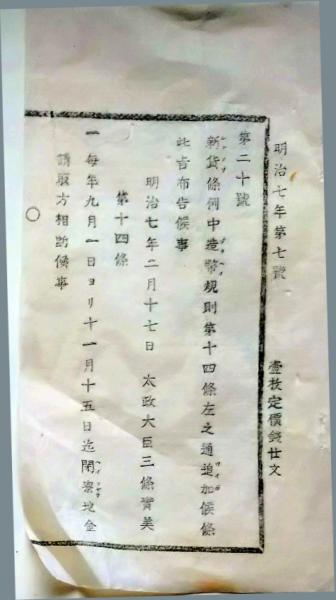 明治七年第七號　壹枚定價錢廿文
第二十號
新貨條例中造幣規則第十四條左之通追加候條
此旨布告候事
明治七年二月十七日　太政大臣三條實美
第十四條
一每年九月一日ヨリ十一月十五日迄閉寮地金
請取方相斷候事
○